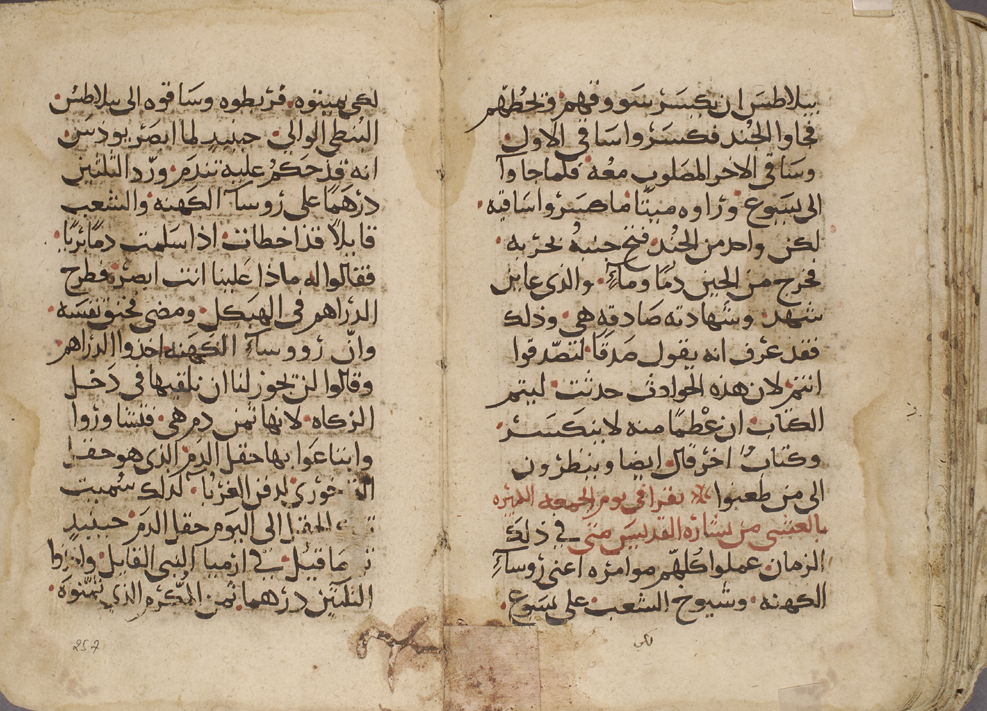 بيلاطس ان تكسر سووقهم وتحطهم
فجاوا الجند فكسروا ساقي الاول
وساقي الاخر المصلوب معه فلما جاوآ
الى يسوع وراوه ميتًا ما كسروا ساقيه
لكن واحد من الجند فتح جنبه بحربه
فخرج من الحين دمًا وماءً والذي عاين
شهد وشهادته صادقه هي وذلك
فقد عرف انه يقول صدقًا لتصدقوا
انتم لان هذه الحوادث حدثت ليتم
الكتاب ان عظمًا منه لا ينكسر
وكتابٌ اخر قال ايضا وينظرون
الى من طعنوا يقرا في يوم الجمعه الكبيره
بالعشي من بشاره القديس متى في ذلك
الزمان عملوا كلهم موامره اعني روسآء
الكهنه وشيوخ الشعب على يسوع
لكي
لكي يميتوه فربطوه وساقوه الى بيلاطس
البنطي الوالي حينيد لما ابصر يودس
انه قد حكم عليه تندم ورد الثلثين
درهمًا على روسآء الكهنه والشعب
قايلاً قد اخطات اذ اسلمت دمًا بريًا
فقالوا له ماذا علينا انت ابصر فطرح
الدراهم في الهيكل ومضى فخنق نفسه
وان رووسآء الكهنه اخدوا الدراهم
وقالوا لن يجوز لنا ان نلقيها في دخل
الزكاه لانها ثمن دم هي فتشاوروا
وابتاعوا بها حقل الدم الذي هو حقل
خوري لدفن الغربا لذلك سميت
الحقل الى اليوم حقل الدم حينيد
ما قيل في ارميا النبي القايل واخدوا
الثلثين درهما ثمن المكرم الذي ثمنوه
257